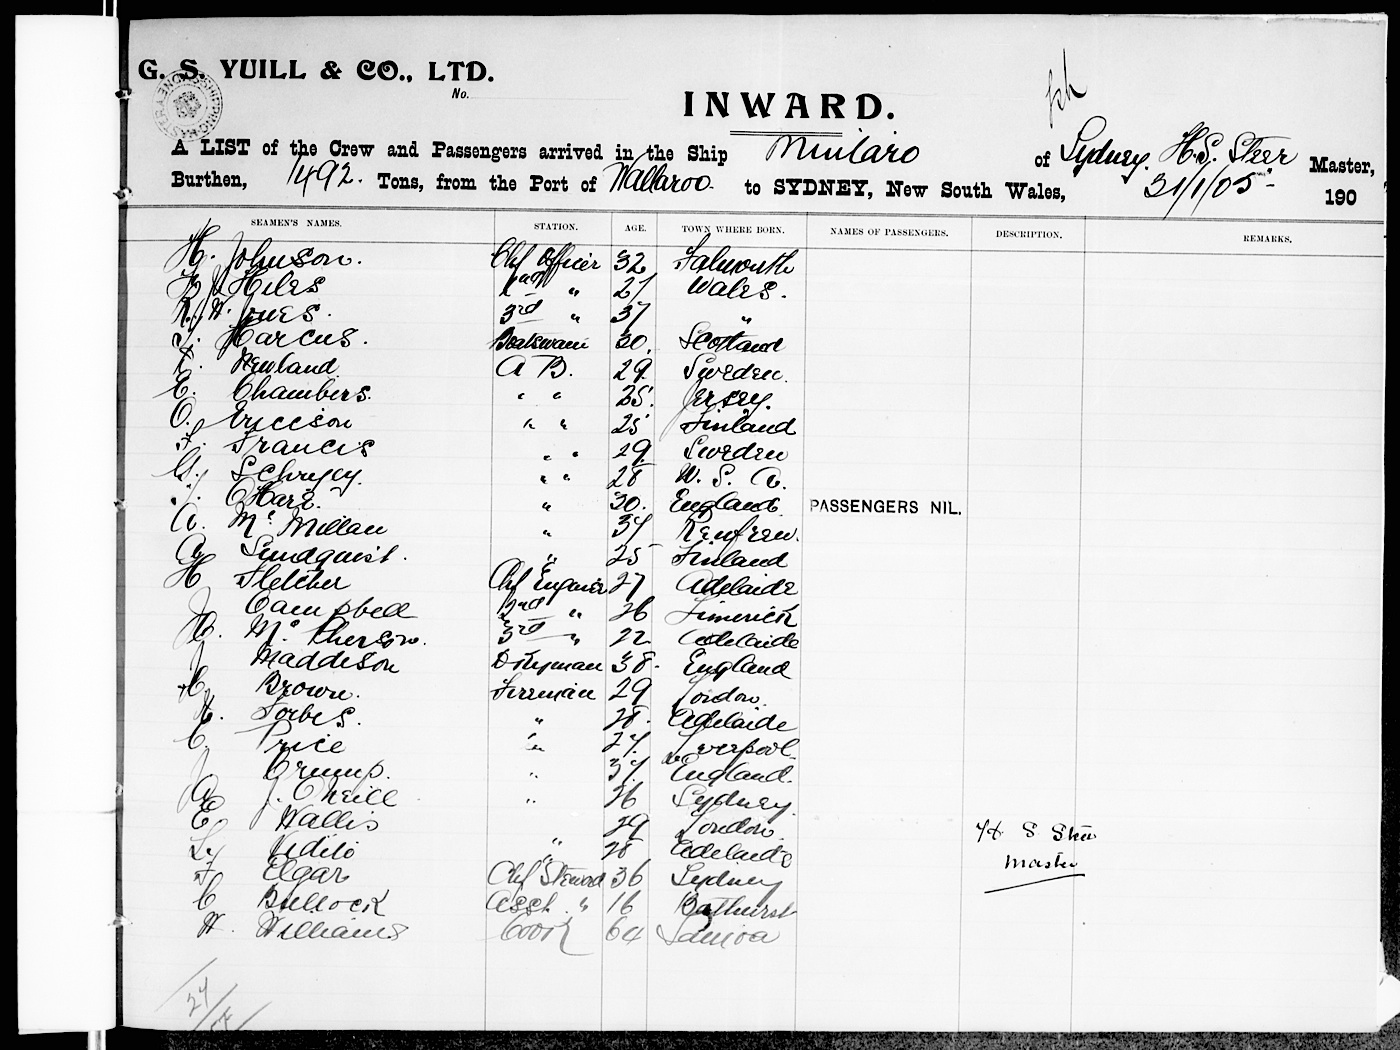 G. S. YUILL & CO., LTD.
No.
INWARD.
A LIST of the Crew and Passengers arrived in the Ship Mintaro of Sydney, H. S. Steer Master,
Burthen, 1492. Tons, from the Port of Wallaroo. to SYDNEY, New South Wales, 31/1/05 190
SEAMEN'S NAMES. STATION. AGE. TOWN WHERE BORN. NAMES OF PASSENGERS. DESCRIPTION. REMARKS.
H. Johnson. Chf Officer 32 Falmouth
Hiles 2nd " 27 Wales.
R. W. Jones. 3rd " 37 "
J. Harcus. Boatswain 30. Scotland
Newland A B. 29. Sweden.
E. Chambers. " " 25. Jersey.
O. Ericcson " " 25 Finland
F. Francis " " 29. Sweden
" " 28 U. S. A.
J. O'Hara. " 30. England. PASSENGERS NIL.
A. McMillan " 34 Renfrew.
A. Sundquist. " 25 Finland
H Fletcher Chf Engineer 27 Adelaide
J Campbell 2nd " 26 Limerick
H. McPherson. 3rd " 22 Adelaide
J Maddison D'keyman 38. England
C. Brown. Fireman 29 London.
H. Forbes. " 28. Adelaide
C. Price " 24. Liverpool.
J Crump. " 37. England.
A J. O'Neill " 26 Sydney.
E Wallis 29 London.
" 28 Adelaide H S Steer
F Elgar Chf Steward 36 Sydney Master
C Bullock Asst. " 16 Bathurst
W. Williams Cook 64 Samoa
24